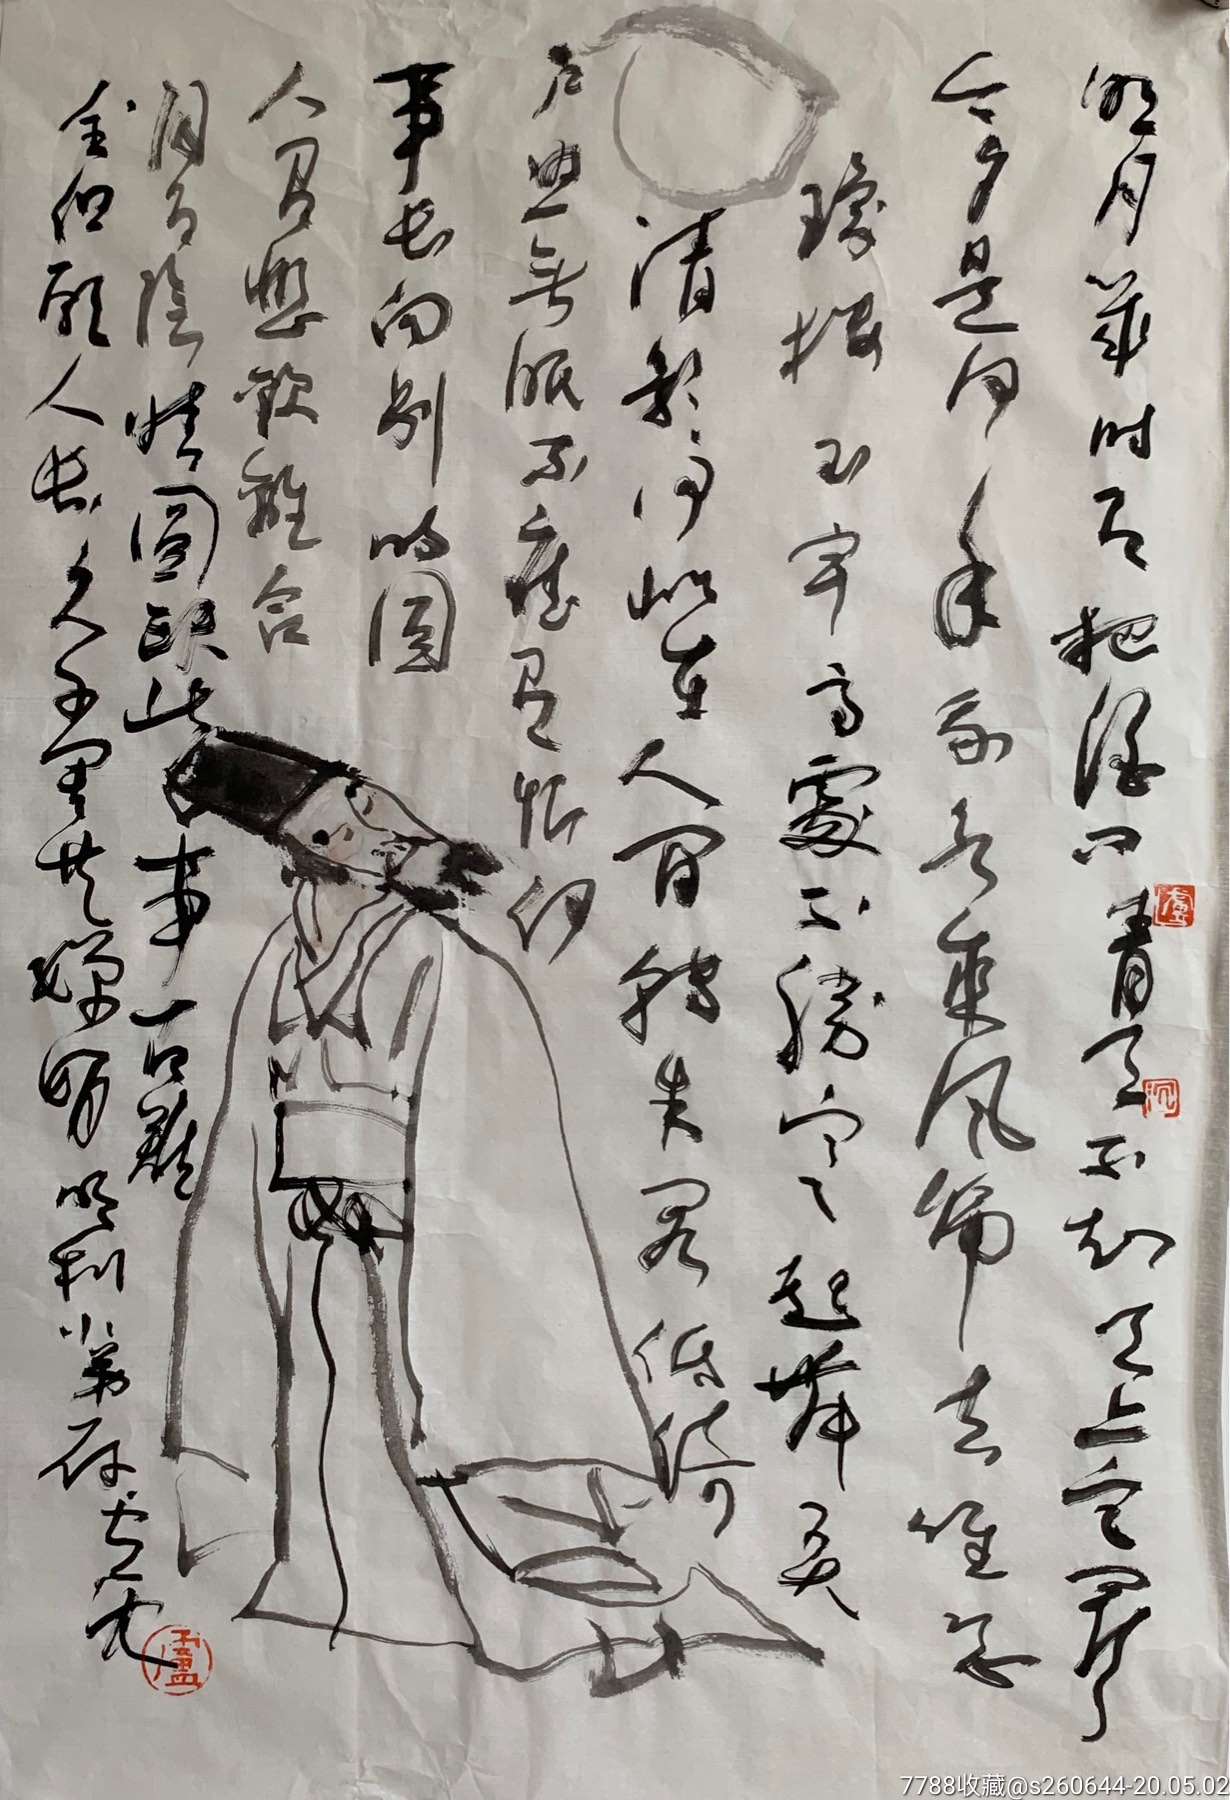 明月幾时有把酒问青天不知天上宫阙
今夕是何年我欲乘风歸去唯恐
瓊樓玉宇高處不勝寒起舞弄
清影何似在人间转朱阁低绮
户照無眠不應有恨何
事长向别时圆
人有悲歡離合
月有陰晴圓缺此事古難
全但願人长久千里共嬋娟 明利小弟存
盧
盧
7788收藏@s260644-20.05.02